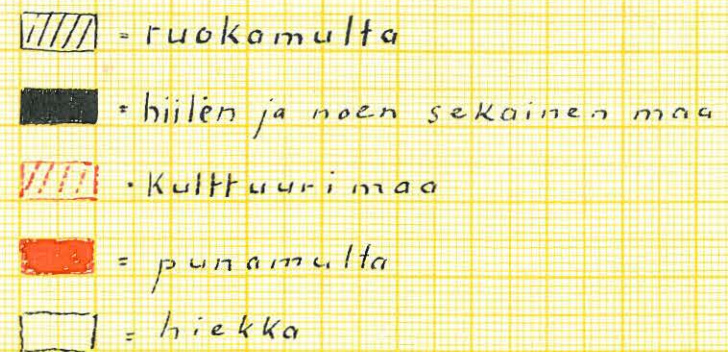 = ruokamulta
= hiilen ja noen sekainen maa
= Kulttuurimaa
= punamulta
= hiekka